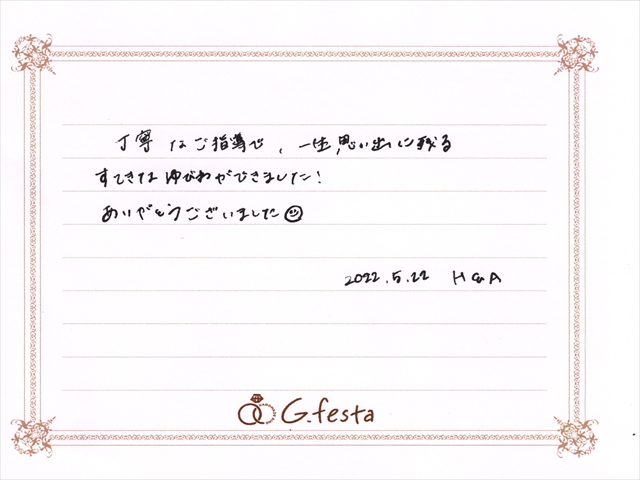 丁寧なご指導で、一生思い出に残る
すてきなゆびわができました!
ありがとうございました
2022.5.22 H&A
G.festa